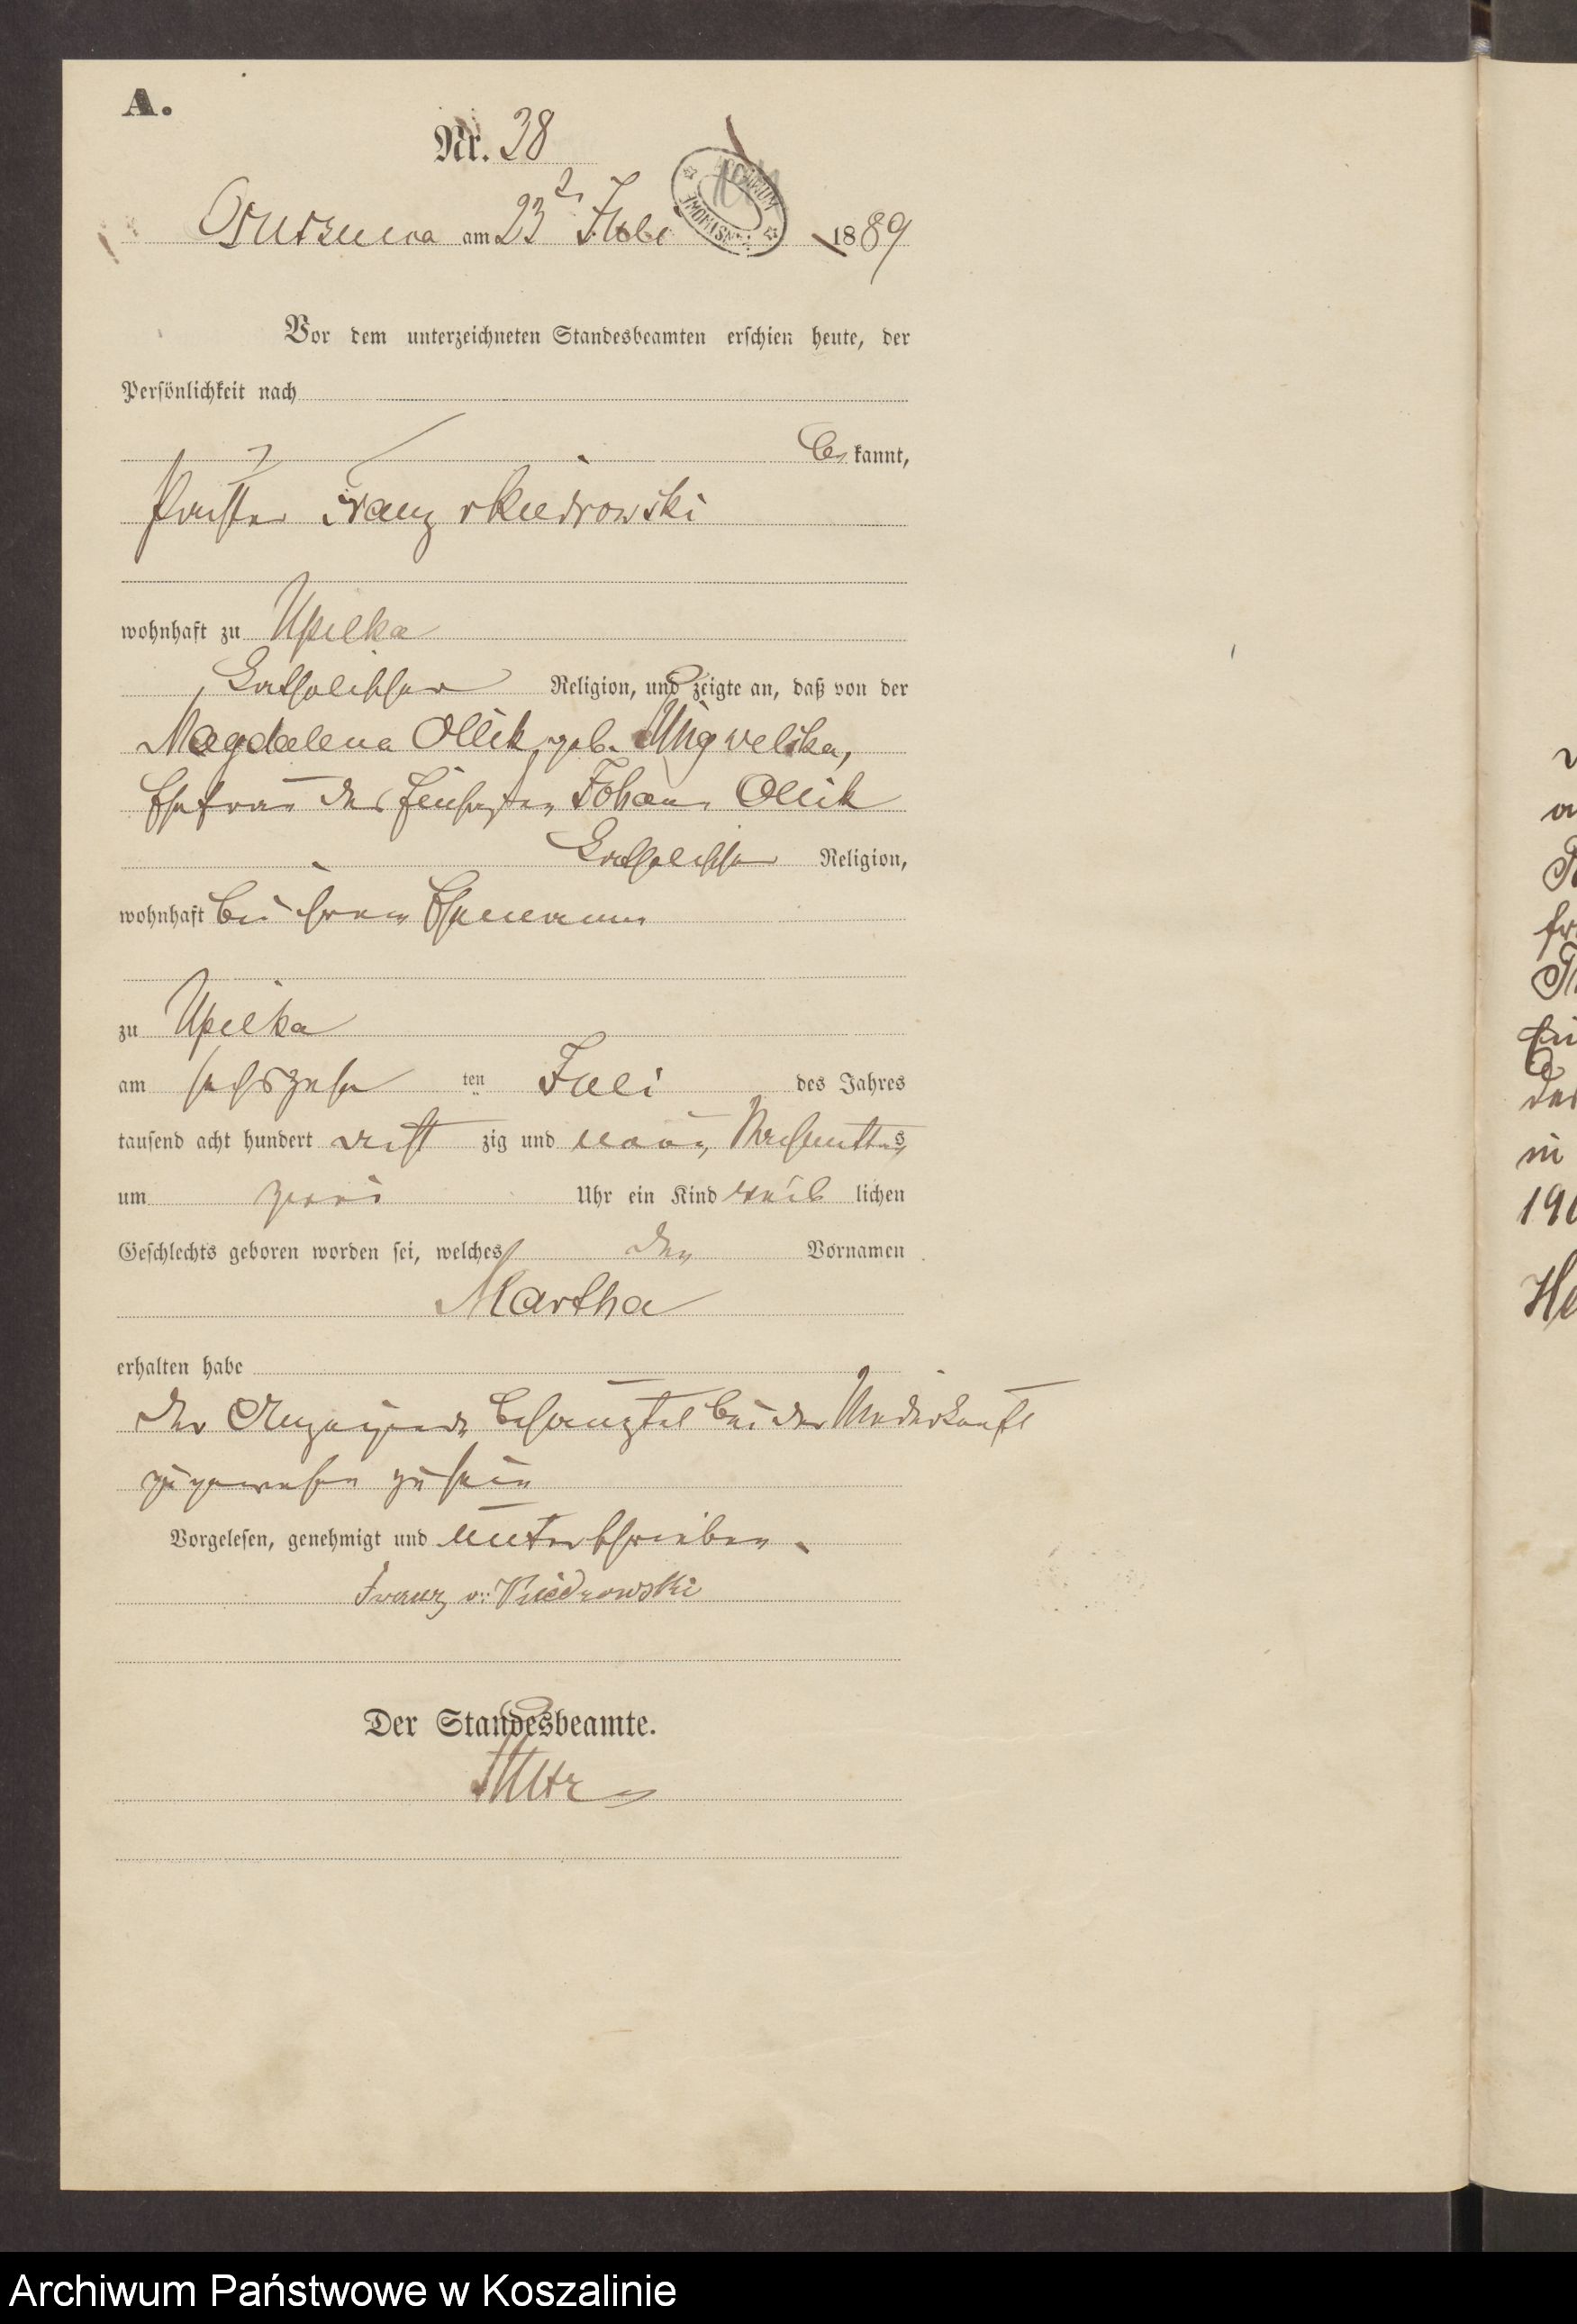 A.
Nr. 38
am 23 ten Juli 1889
Vor dem unterzeichneten Standesbeamten erschien heute, der
Persönlichkeit nach
be kannt,
Franz v Kiedrowski
wohnhaft zu Upilka
katholischer Religion, und zeigte an, daß von der
Magdalena Ollik, geb.
Ehefrau des Johann Ollik
katholischer Religion,
wohnhaft bei ihrem Ehemann
zu Upilka
am sechszehn ten Juli des Jahres
tausend acht hundert acht zig und neun, Nachmittags
um zwei Uhr ein Kind weib lichen
Geschlechts geboren worden sei, welches den Vornamen
Martha
erhalten habe
Der Anzeigende behauptet bei der Niederkunft
zugewesen zu sein
Vorgelesen, genehmigt und unterschrieben.
Franz v: Kiedrowski
Der Standesbeamte.
in
Archiwum Państwowe w Koszalinie